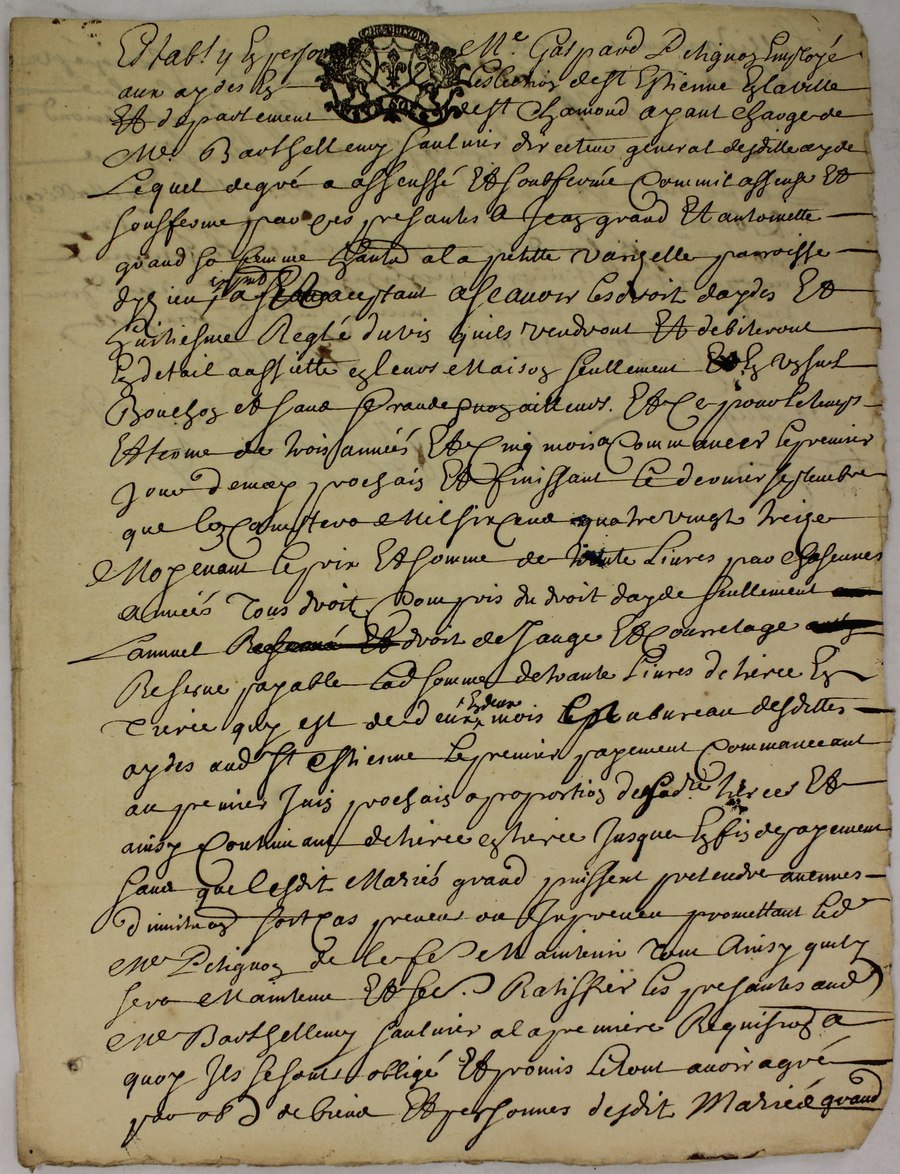 Establ y En personne Me Gaspard Petignoz Employé
aux aydes En Eslection de St Estienne En la ville
Et departement de St Chamond ayant charge de
Me Barthellemy Saulnier directeur general desdittes ayde
Lequel de gré a assenssé Et soubsfermé Comme il assense Et
sousferme par ces presantes A Jean grand Et antoinette
grand sa femme habitand a la petitte varizelle parroisse
d'yzieu acceptant ascavoir les droit daydes Et
huitiesme Reglé du vin quils vendront Et debiteront
En detail a assiette en leur Maison seullement Et En un seul
Bouchon et sans fraude non ailleurs. Et Ce pour le temps
Et terme de trois années Et Cinq mois a Commancer le premier
Jour de may prochain Et finissant le dernier septembre
que lon Comptera Mil six Cend quatre vingt treize
Moyenant le prix Et somme de trante Livres par chascunes
années Tous droit Compris du droit dayde seullement
Lannuel droit de Jauge Et Courretage
Reserve payable lad somme de trante Livres de tierce En
Tierce quy est de deux En deux mois au bureau desdittes
aydes aud St Estienne Le premier payement Commanceant
au premier Juin prochain a proportion de lad. tierce Et
ainsy Continuant de tierce en tierce Jusques En fin de payement
sans que lesdit Mariés grand puissent pretendre aucunes
diminution soit cas preveu ou Inpreveu promettant led
Me Petignoz de les Maintenir Tout Ainsy quil
sera Maintenu Et Ratiffier les presantes aud
Me Barthellemy Saulnier a la premiere Requisition A
quoy Ils se sont obligé Et promis le tout avoir agré
par ob de biens Et personnes desdit Mariéé grand